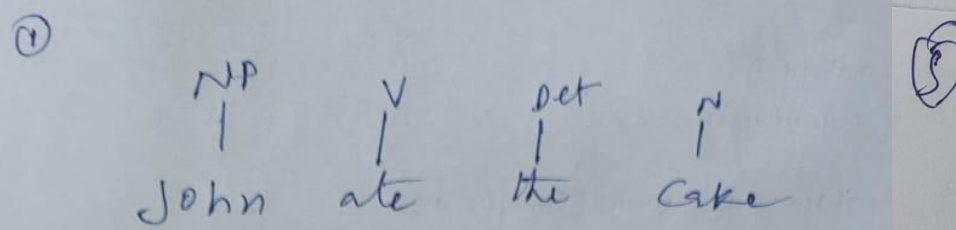 ④
NP V Det N
John ate the Cake
⑤